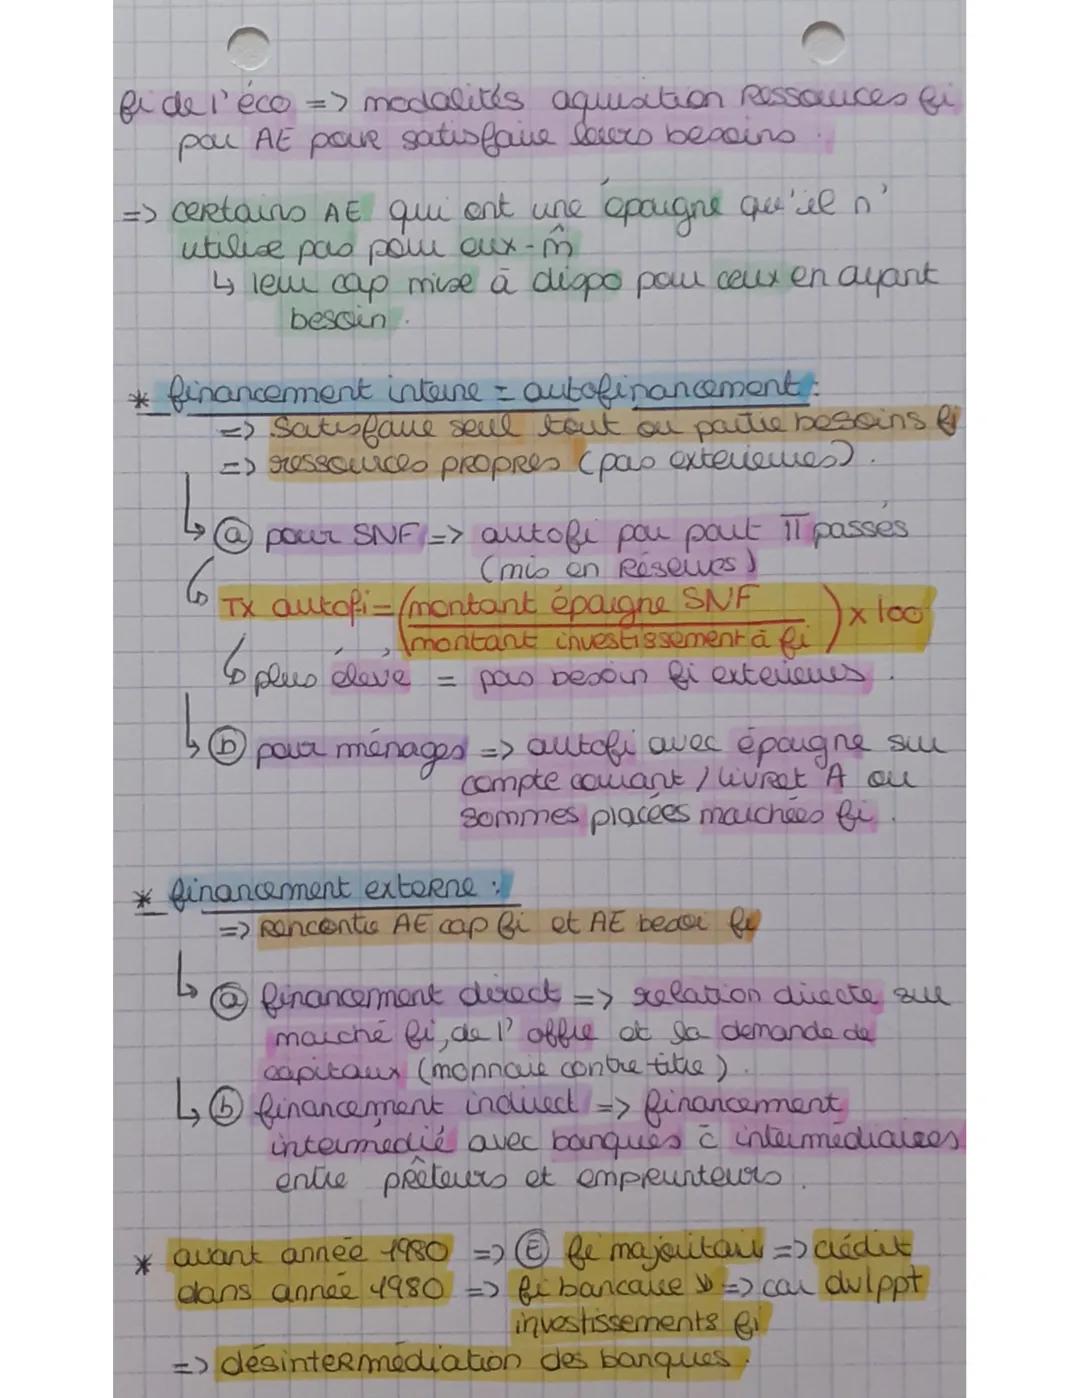 fi de l'éco => modalités aquisition Ressources fi
par AE pour satisfaire leurs besoins.
=> certains AE qui ont une épargne qu'il n'
utilise pas pour eux-m̂
↳ leur cap mise à dispo pour ceux en ayant
besoin.
* financement interne = autofinancement :
=> Satisfaire seul tout ou partie besoins fi
=> ressources propres (pas exterieures).
↳ ⓐ pour SNF => autofi par part π passés
(mis en Réserves)
↳ Tx autofi = (montant épargne SNF
montant investissement à fi) x 100
↳ plus élevé = pas besoin fi exterieures.
↳ ⓑ pour ménages => autofi avec épargne sur
compte courant / livret A ou
sommes placées marchées fi.
* financement externe :
=> Rencontre AE cap fi et AE besoi fi
↳ ⓐ financement direct => relation directe sur
marché fi, de l'offre et la demande de
capitaux (monnaie contre titre).
↳ ⓑ financement indirect => financement
intermédié avec banques c̄ intermédiaires
entre prêteurs et emprunteurs.
* avant année 1980 => Ⓔ fi majoritair => crédit
dans année 1980 => fi bancaire ↘ => car dvlppt
investissements fi
=> désintermédiation des banques.